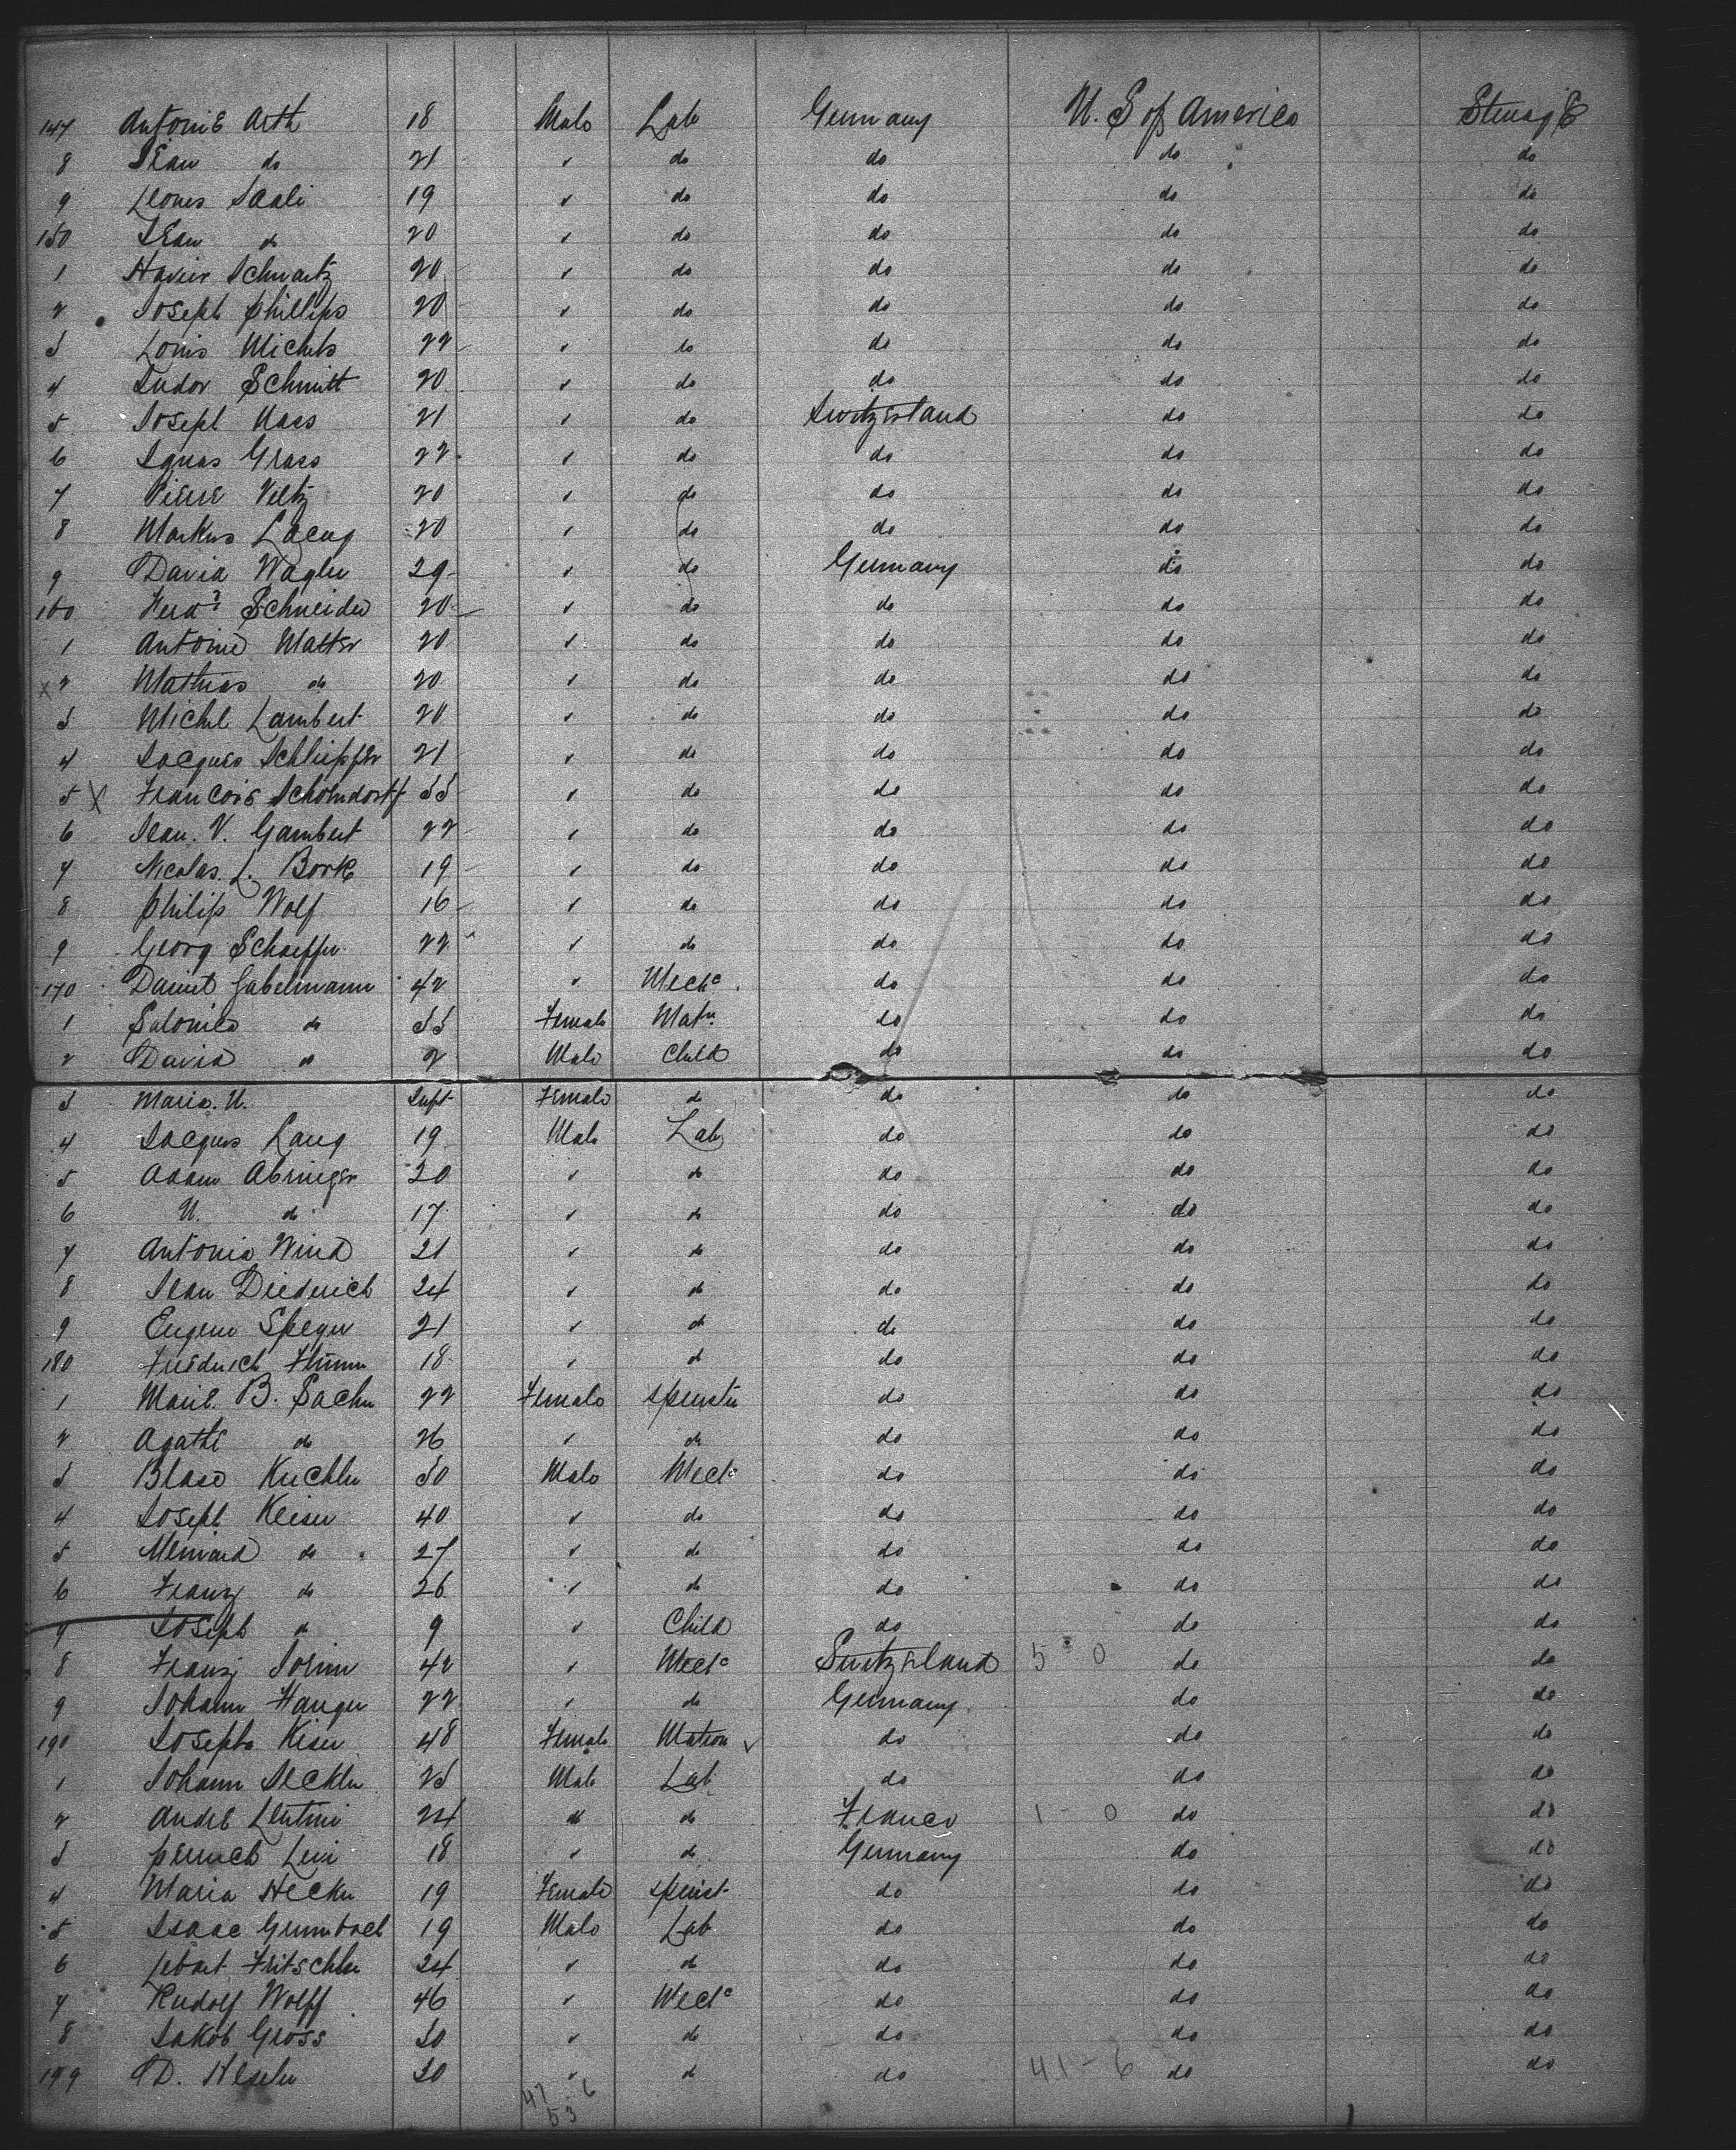 147 Antoine Arth 18 Male Lab Germany U. S of America Steerage
8 Jean do 21 " do do do do
9 Leones Saali 19 " do do do do
150 Jean do 20 " do do do do
1 Xavier Schwartz 20 " do do do do
2 Joseph Phillips 20 " do do do do
3 Louis Michels 22 " do do do do
4 Isidor Schmitt 20 " do do do do
5 Joseph Haas 21 " do Switzerland do do
6 Ignas Grass 22 " do do do do
7 Pierre Veltz 20 " do do do do
8 Markus Laeng 20 " do do do do
9 David Wagler 29 " do Germany do do
160 Ferd. Schneider 20 " do do do do
1 Antoine Matter 20 " do do do do
x 2 Mathias do 20 " do do do do
3 Michel Lambert 20 " do do do do
4 Jacques Schlupffer 21 " do do do do
5 X Francois Schorndorff 33 " do do do do
6 Jean. V. Gambert 22 " do do do do
7 Nicolas. L. Bork 19 " do do do do
8 Philip Wolf 16 " do do do do
9 Georg Schaeffer 22 " do do do do
170 Daniel Gabelmann 42 " Mech do do do
1 Salomea do 33 Female Matn do do do
2 David do 2 Male Child do do do
3 Maria. U. Inft Female do do do do
4 Jacques Lang 19 Male Lab do do do
5 Adam Abringer 20 " do do do do
6 N. do 17 " do do do do
7 Antonia Wind 21 " do do do do
8 Jean Diederich 24 " do do do do
9 Eugene Speger 21 " do do do do
180 Friederich Flumm 18 " do do do do
1 Marie. B. Sacher 22 Female Spinster do do do
2 Agathe do 26 " do do do do
3 Blaso Kuchler 30 Male Mech do do do
4 Joseph Keiser 40 " do do do do
5 Meinard do 27 " do do do do
6 Franz do 26 " do do do do
7 Joseph do 9 " Child do do do
8 Franz Sorinn 42 " Mech Switzerland 5 - 0 do do
9 Johann Hanger 22 " do Germany do do
190 Josepha Kiser 48 Female Matron do do do
1 Johann Seckler 25 Male Lab do do do
2 Andre Lentini 24 do do France 1 - 0 do do
3 Levi 18 " do Germany do do
4 Maria Hecker 19 Female Spinst do do do
5 Isaac Grumbach 19 Male Lab do do do
6 Fritschler 24 " do do do do
7 Rudolf Wolff 46 " Mech do do do
8 Jakob Gross 30 " do do do do
199 D. Hesler 30 " do do 41 - 6 do do
47 6
53